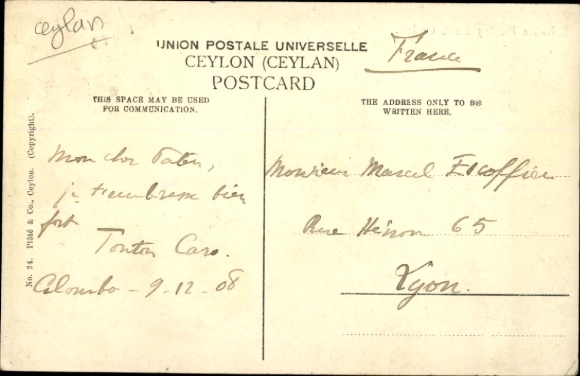 ceylan
UNION POSTALE UNIVERSELLE
CEYLON (CEYLAN)
POSTCARD
France
THIS SPACE MAY BE USED
FOR COMMUNICATION.
THE ADDRESS ONLY TO BE
WRITTEN HERE.
Mon cher
je t'embrasse bien
fort
Tonton Caro.
Colombo - 9-12-08
Monsieur Marcel Escoffier
Rue Hénon 65
Lyon.
No. 24. Plâté & Co., Ceylon. (Copyright).